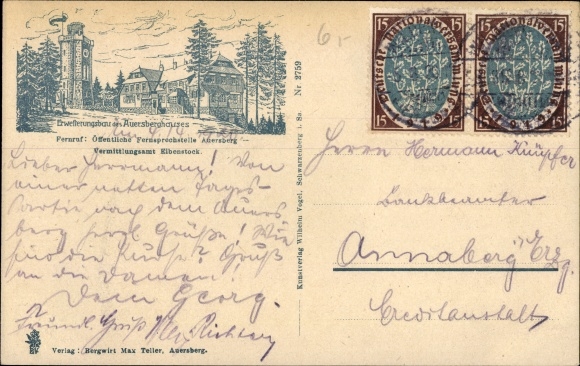 Erweiterungsbau des Auersberghauses
Fernruf: Öffentliche Fernsprechstelle Auersberg
Vermittlungsamt Eibenstock.
Lieber Herrmann! Von
einer netten Tages-
partie nach dem Auers-
berg herzl. Grüße! Wie
sind die Kurse? Gruß
an die Damen!
Dein Georg.
Freundl. Gruß
Verlag: Bergwirt Max Teller, Auersberg.
Kunstverlag Wilhelm Vogel, Schwarzenberg i. Sa. Nr. 2759
6,-
15 Deutsche Nationalversammlung 1919 15
15 15
15 Deutsche Nationalversammlung 1919 15
15 15
Herrn Hermann Knüpfer
Bankbeamter
Annaberg i/Erzg.
Creditanstalt